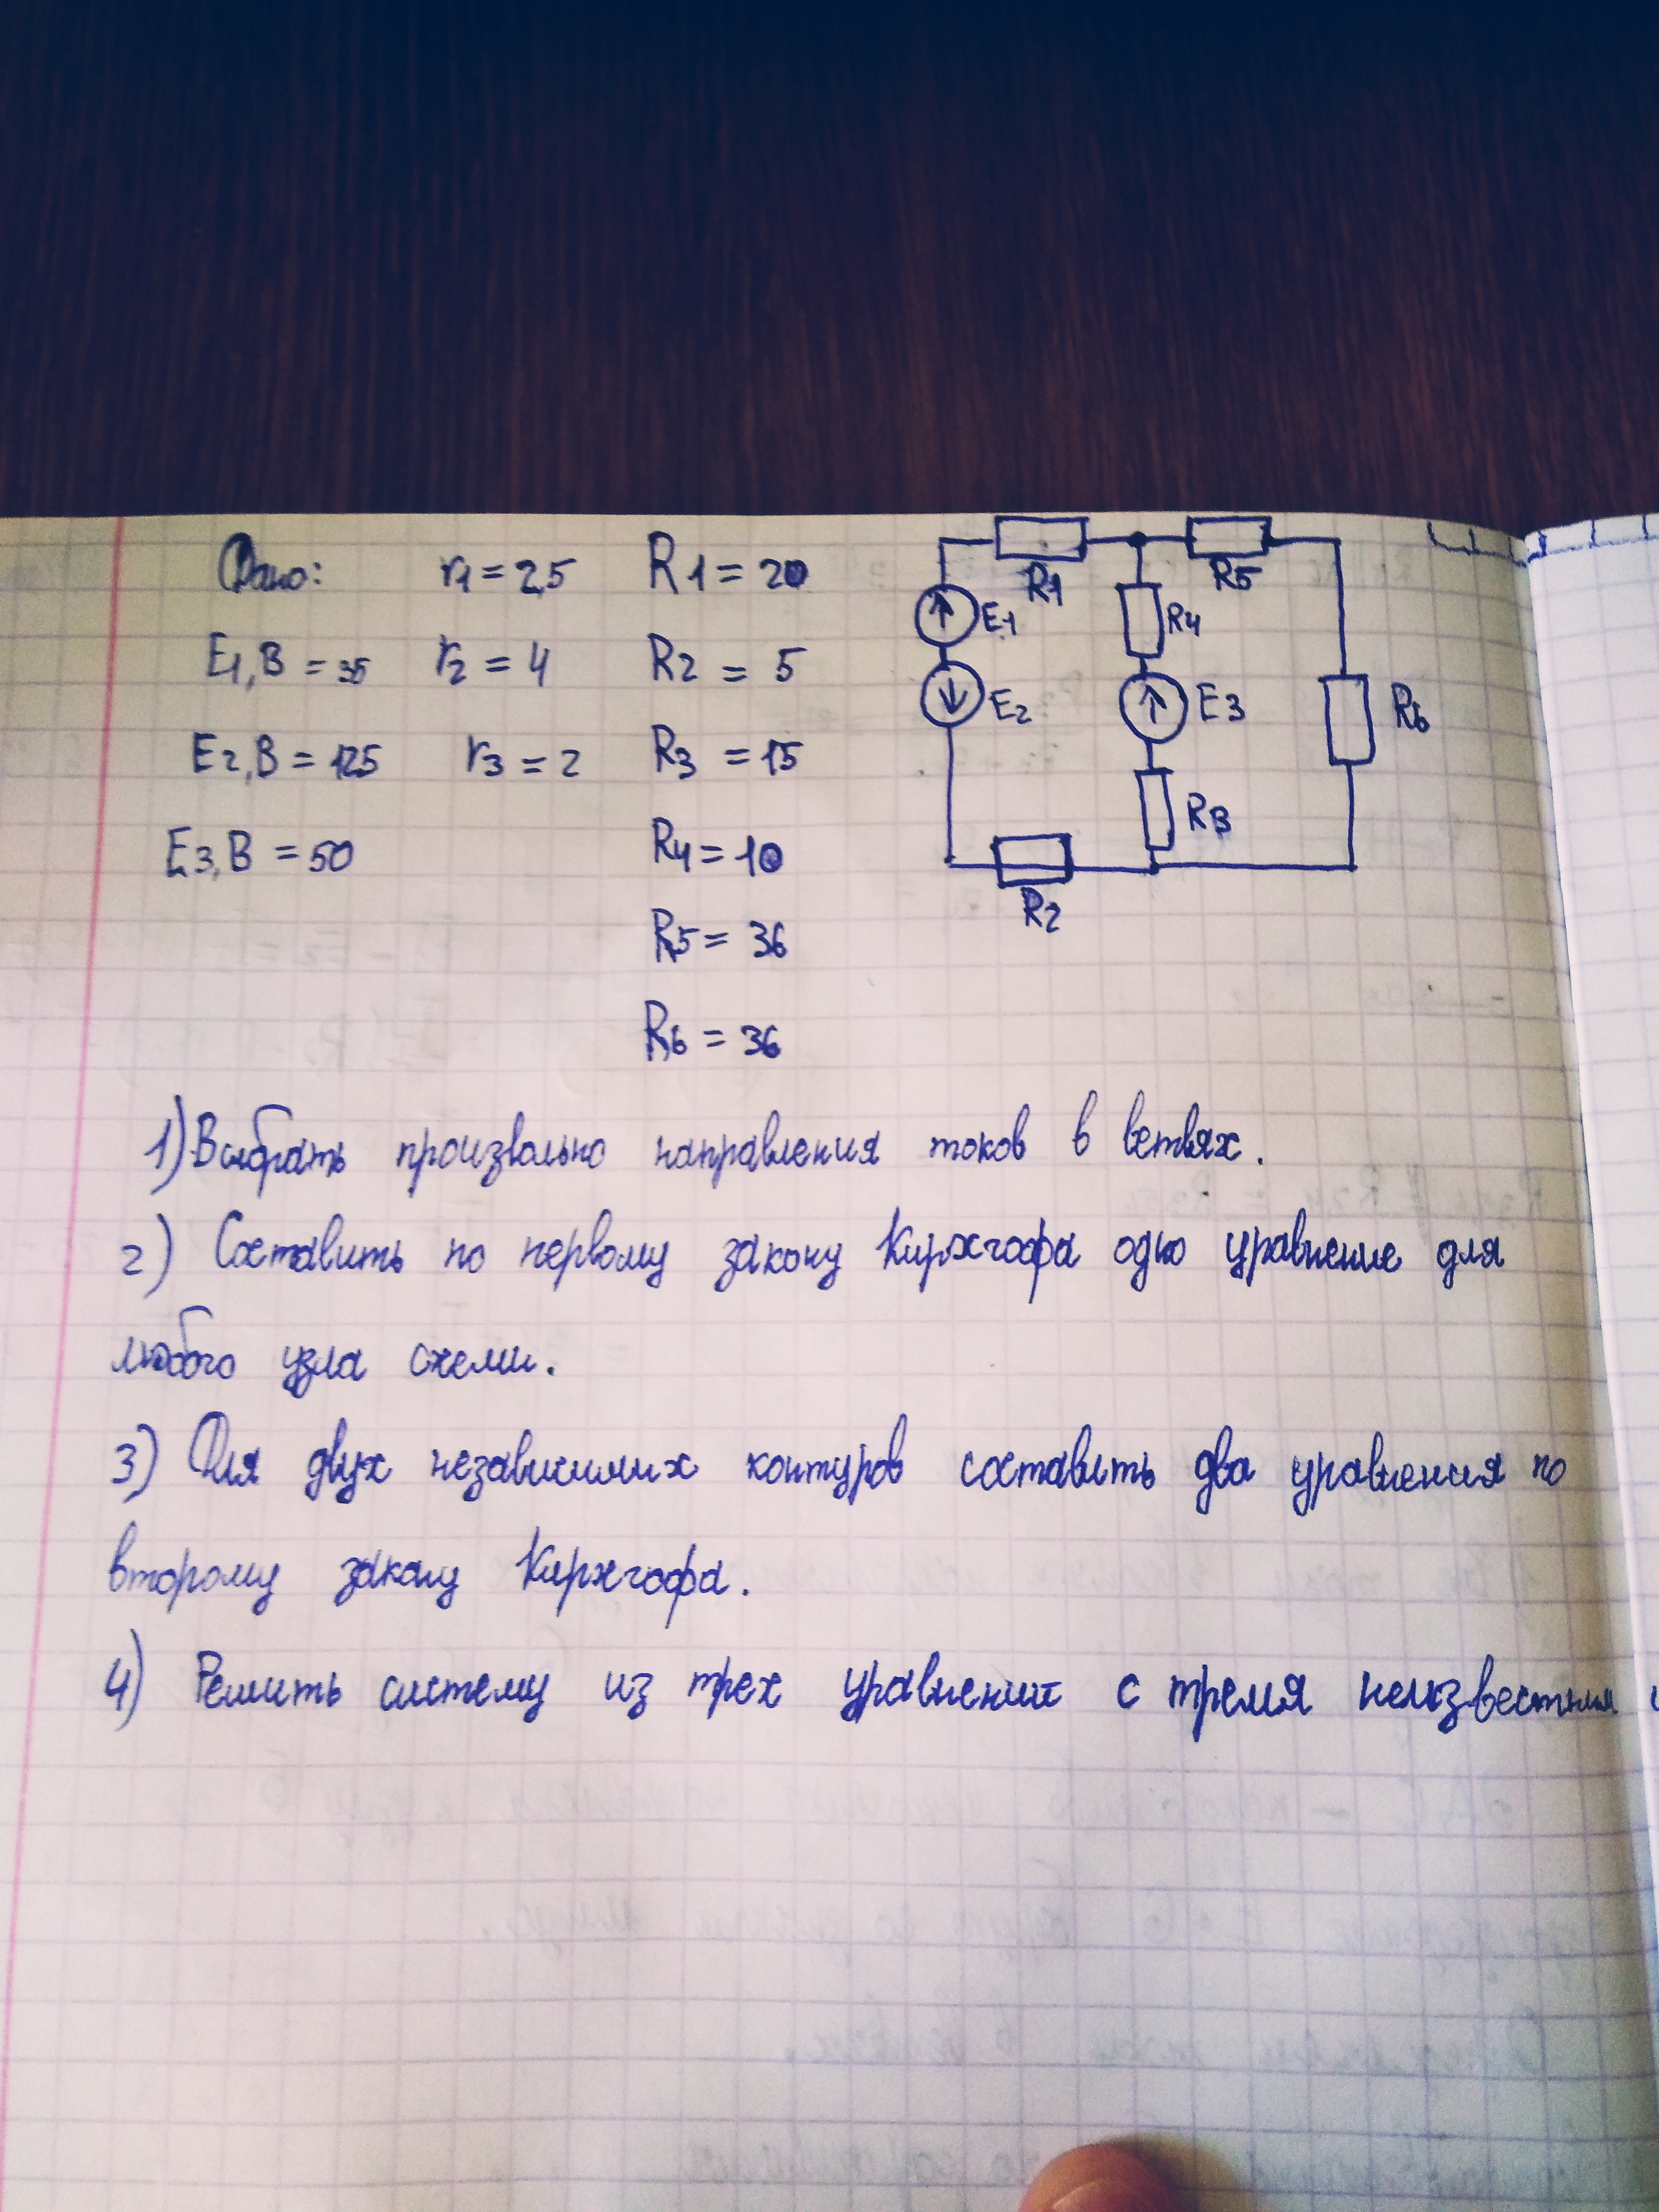 Дано: r1 = 2,5 R1 = 20
E1, В = 35 r2 = 4 R2 = 5
E2, В = 125 r3 = 2 R3 = 15
E3, В = 50 R4 = 10
R5 = 36
R6 = 36
R1 R5
E1 R4
E2 E3 R6
R3
R2
1) Выбрать произвольно направления токов в ветвях.
2) Составить по первому закону Кирхгофа одно уравнение для
любого узла схемы.
3) Для двух независимых контуров составить два уравнения по
второму закону Кирхгофа.
4) Решить систему из трех уравнений с тремя неизвестным